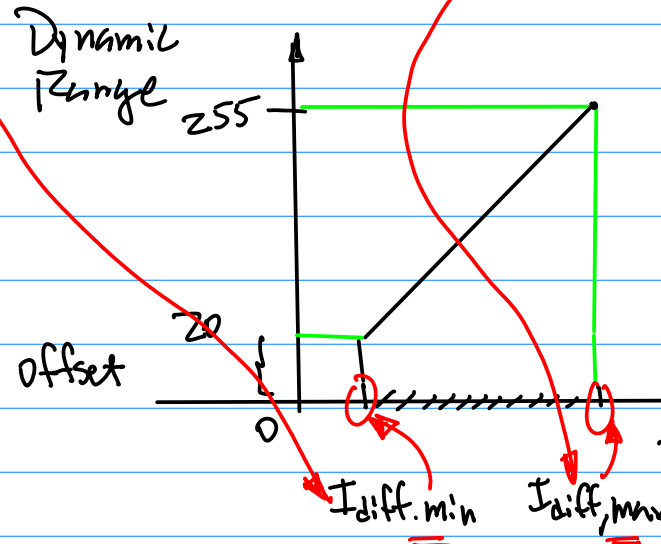 Dynamic
Range
255
20
offset
0
Idiff.min Idiff,max